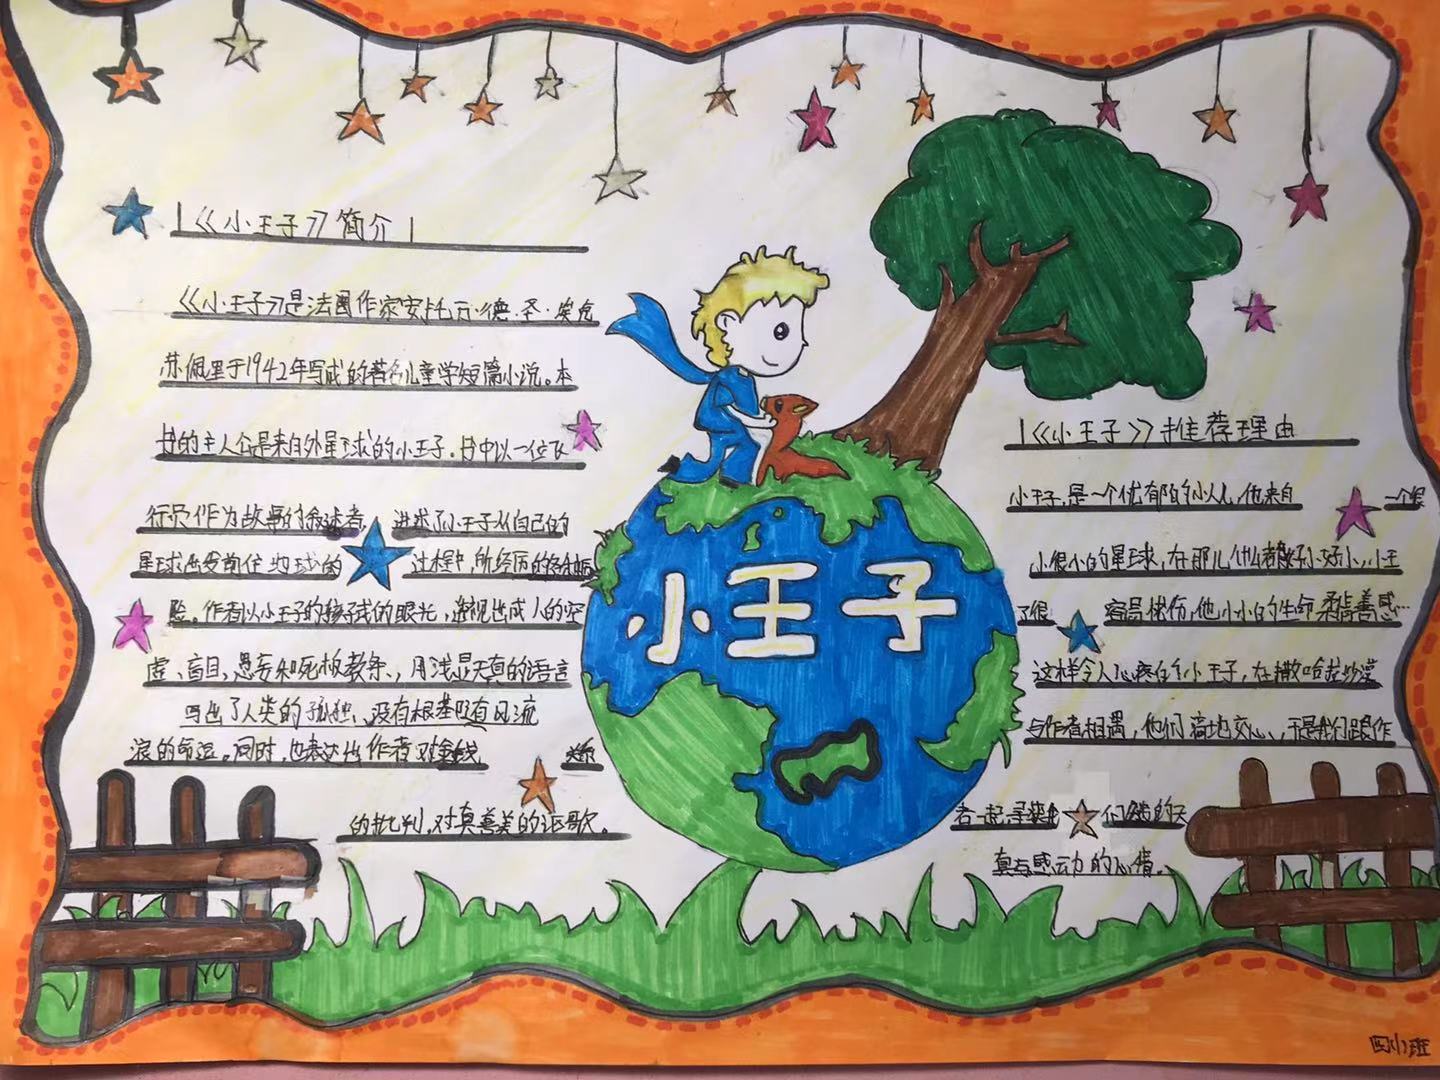 《小王子》简介
《小王子》是法国作家安托万·德·圣·埃克
苏佩里于1942年写成的著名儿童学短篇小说。本
书的主人公是来自外星球的小王子。书中以一位飞
行员作为故事的叙述者 进述了小王子从自己的
星球出发前往地球的 过程中,所经历的各种
险。作者以小王子的孩子式的眼光,透视出成人的空
虚、盲目,愚妄和死板教条、用浅显天真的语言
写出了人类的孤独、没有根基随风流
浪的命运。同时,也表达出作者对金钱 关系
的批判,对真善美的讴歌。
小王子
《小王子》推荐理由
小王子,是一个忧郁的小人儿,他来自 一个很
小很小的星球,在那儿什么都好小好小,小王
了很 容易忧伤,他小小的生命柔情善感…
这样令人心疼的小王子,在撒哈拉沙漠
与作者相遇,他们 地交心、于是我们跟作
者一起寻 们 的天
真与感动的心情。
四小班